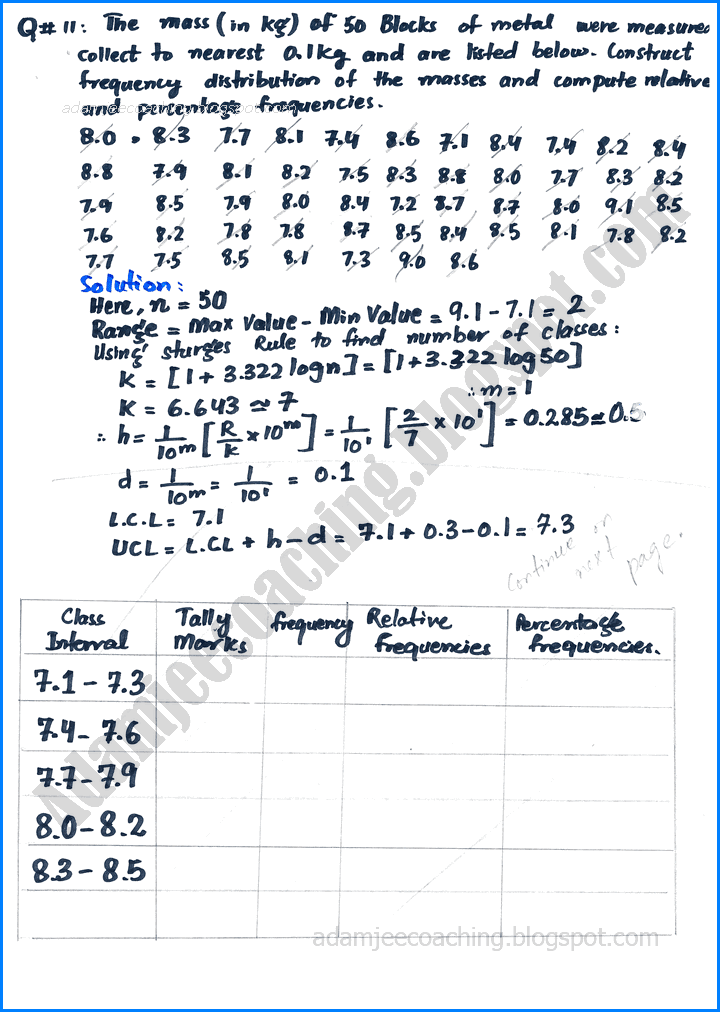 Q# 11: The mass (in kg) of 50 Blocks of metal were measured
collect to nearest 0.1kg and are listed below. Construct
frequency distribution of the masses and compute relative
and percentage frequencies.
adamjeecoaching.blogspot.com
8.0 . 8.3 7.7 8.1 7.4 8.6 7.1 8.4 7.4 8.2 8.4
8.8 7.9 8.1 8.2 7.5 8.3 8.8 8.0 7.7 8.3 8.2
7.9 8.5 7.9 8.0 8.4 7.2 8.7 8.7 8.0 9.1 8.5
7.6 8.2 7.8 7.8 8.7 8.5 8.4 8.5 8.1 7.8 8.2
7.7 7.5 8.5 8.1 7.3 9.0 8.6
Solution:
Here, n = 50
Range = Max Value - Min Value = 9.1 - 7.1 = 2
Using sturges Rule to find number of classes:
K = [1 + 3.322 log n] = [1 + 3.322 log 50]
K = 6.643 ≃ 7 ∴ m = 1
∴ h = 1/10^m [R/k × 10^m] = 1/10^1 [2/7 × 10^1] = 0.285 ≃ 0.5
d = 1/10^m = 1/10^1 = 0.1
L.C.L = 7.1
UCL = L.CL + h - d = 7.1 + 0.3 - 0.1 = 7.3
Continue on
next
page.
Class Interval Tally Marks frequency Relative frequencies Percentage frequencies.
7.1 - 7.3
7.4 - 7.6
7.7 - 7.9
8.0 - 8.2
8.3 - 8.5
Adamjeecoaching.blogspot.com
adamjeecoaching.blogspot.com